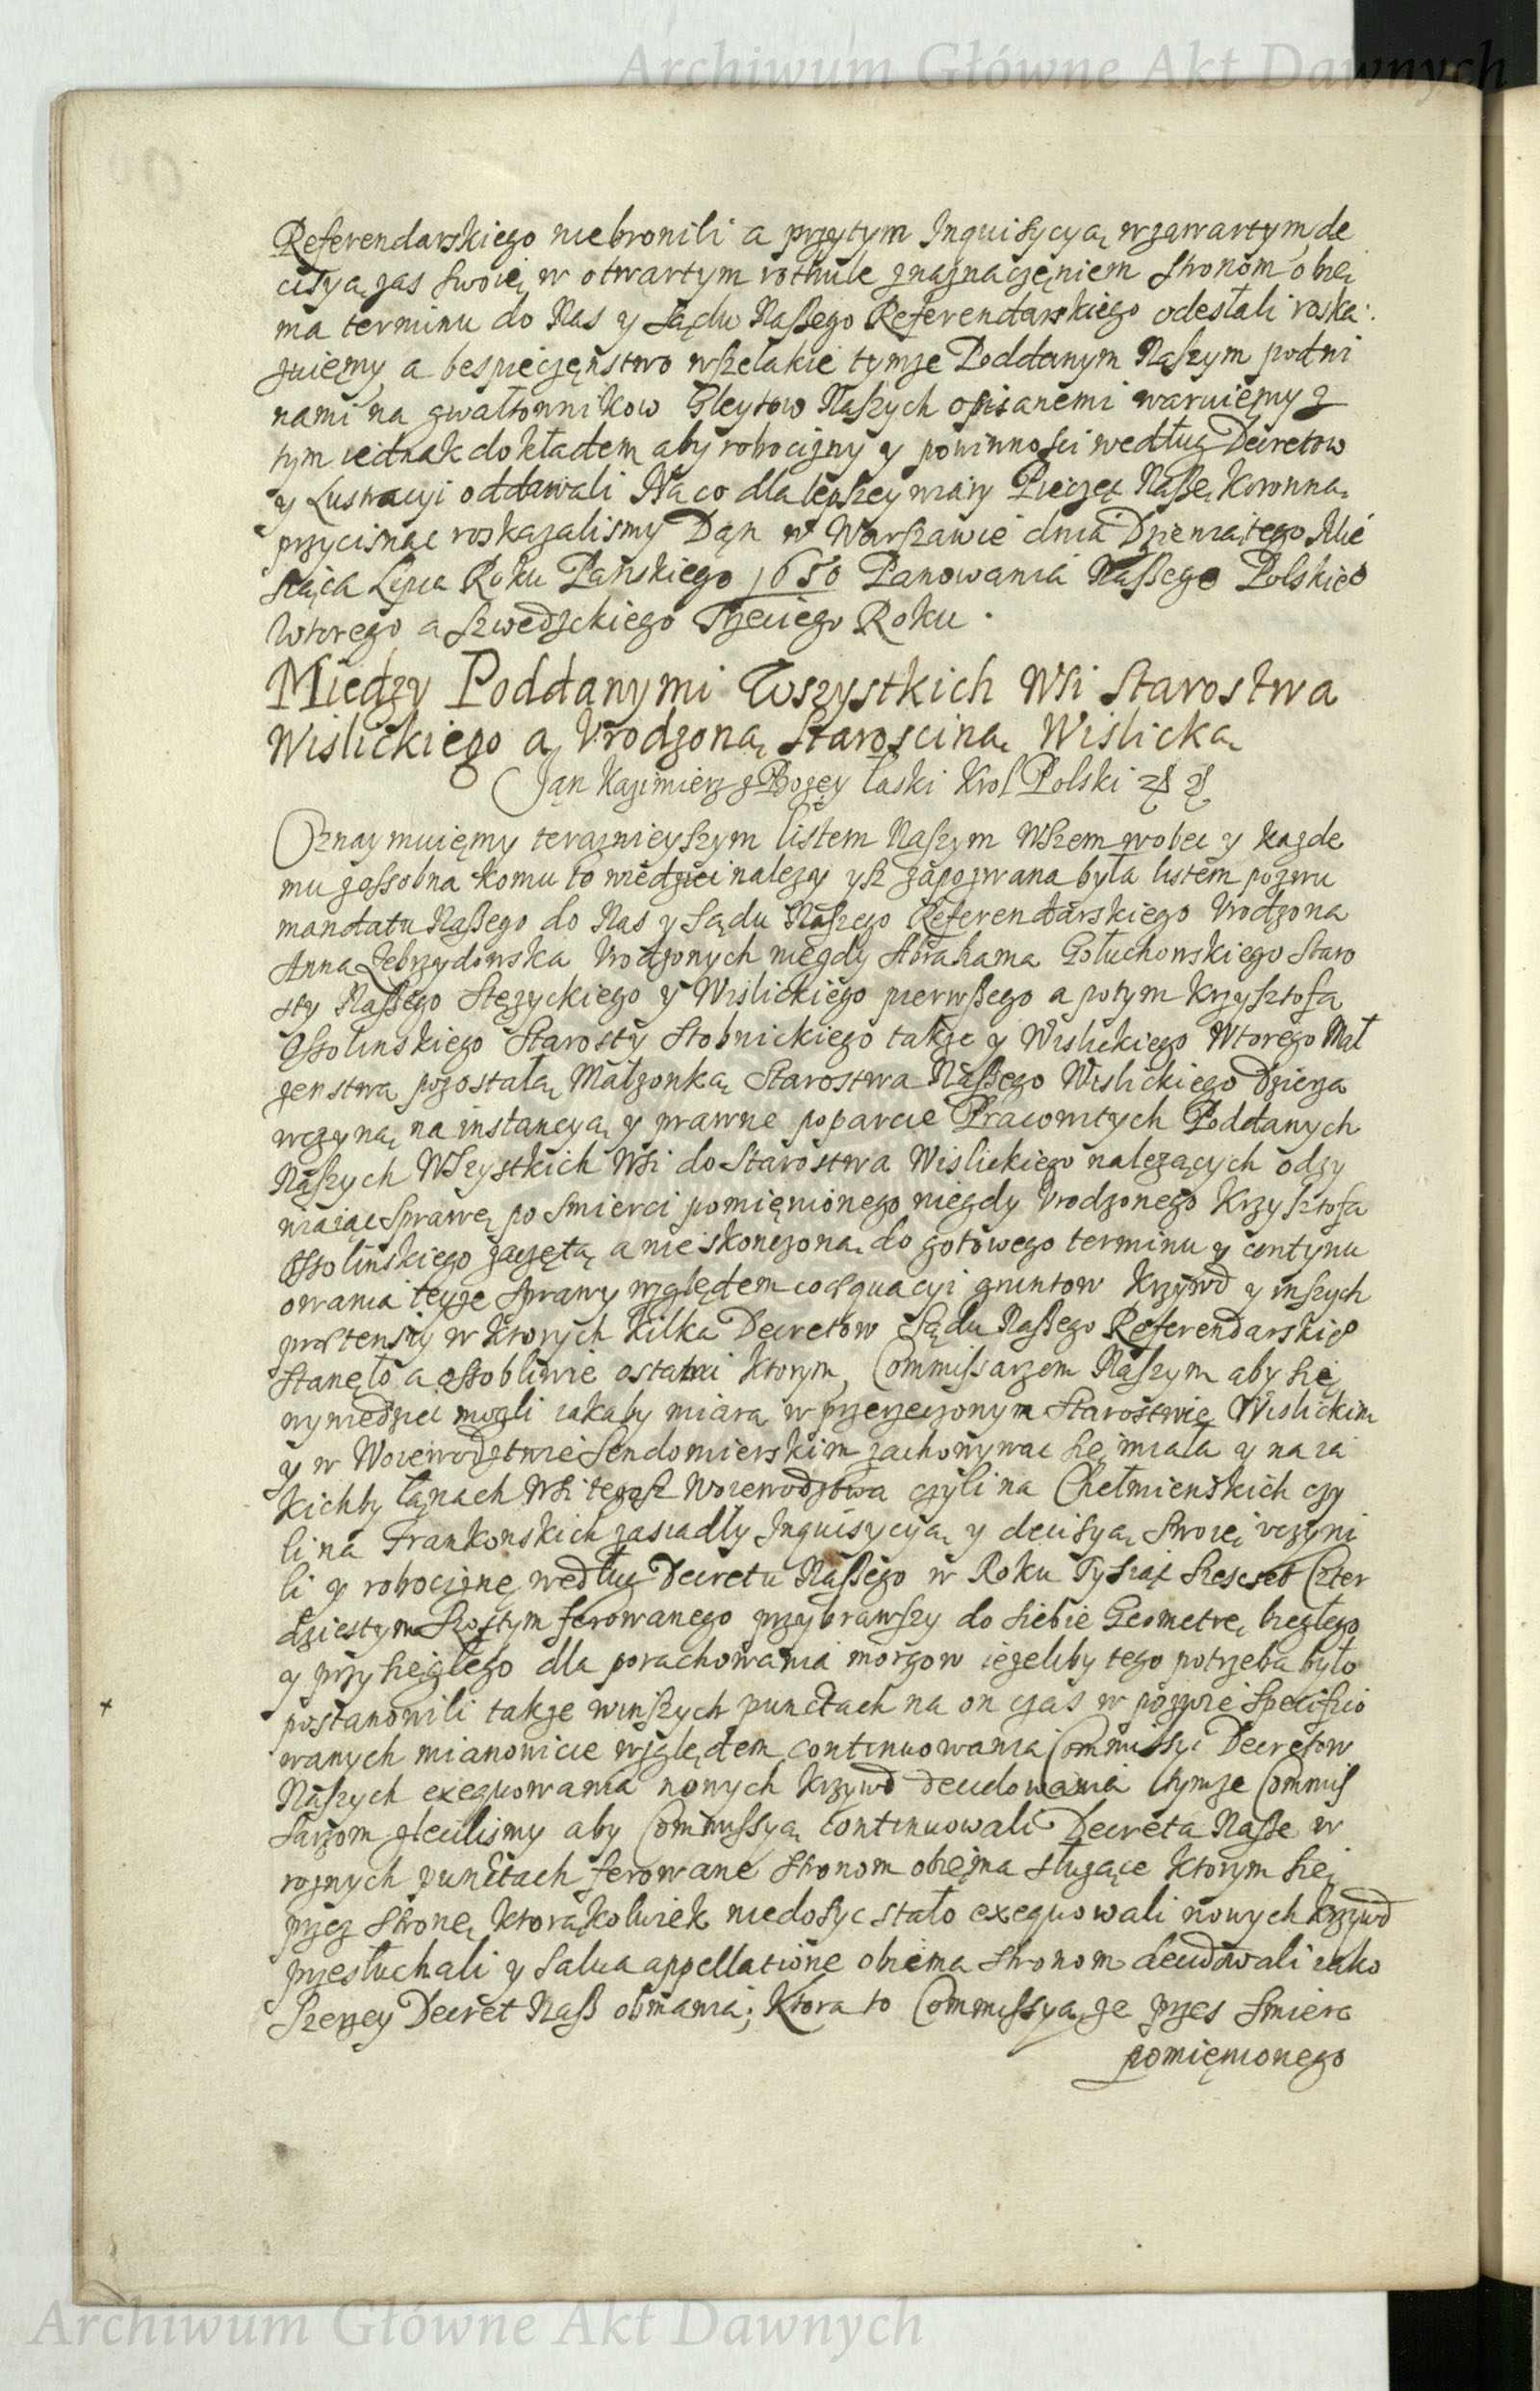 Archiwum Główne Akt Dawnych
Referendarskiego niebronili a przytym Inquisycyą wzawartym, de
cisyą zas swoię w otwartym rothule znaznaczęniem stronom obie
ma terminu do Nas y Sądu Naßego Referendarskiego odesłali roska
zuięmy a bespieczęnstwo wszelakie tymze Poddanym Naszym podwi
nami na gwałtownikow Gleytow Naszych opisanemi waruięmy z
tym iednak dokładem aby robocizny y powinnosci według Decretow
y Lustracyi oddawali Na co dla lepszey wiary Pieczęć Naßę Koronną
przycisnąc roskazalismy Dąn w Warszawie dnia Dziewiątego Mie
siąca Lipca Roku Panskiego 1650 Panowania Naßego Polskieo
Wtorego a Szwedzkiego Trzeciego Roku.
Między Poddanymi Wszystkich Wsi Starostwa
Wislickiego a Vrodzoną Starosciną Wislicką
Jąn Kazimierz z Bozęy łaski Krol Polski
Oznaymuięmy teraznieyszym listem Naszym Wszem wobec y kazde
mu zossobna komu to wiedziec nalezy ysz zapozwana była listem pozwu
mandatu Naßego do Nas y Sądu Naszego Referendarskiego Vrodzona
Anna Zebrzydowska Vrodzonych niegdy Abrahama Gołuchowskiego Staro
sty Naßego Stęzyckiego y Wislickiego pierwßego a potym Krzysztofa
Ossolinskiego Starosty Stobnickiego takze y Wislickiego Wtorego Mał
zenstwa pozostałą Małzonką Starostwa Naßego Wislickiego Dzierza
wczyną na instancyą y prawne poparcie Pracowitych Poddanych
Naszych Wszystkich Wsi do Starostwa Wislickiego nalezących odzy
waiąc sprawę po smierci pomięnionego niegdy Vrodzonego Krzysztofa
Ossolinskiego zaczętą a nieskonczoną do gotowego terminu y contynu
owania teyze sprawy względem coæquacyi gruntow Krzywd y inszych
prætensiy w ktorych kilka Decretow Sądu Naßego Referendarskieo
stanęło a ossobliwie ostatni ktorym, Commissarzom Naszym aby się
wywiedziec mogli iakaby miara w przerzeczonym Starostwie Wislickim
y w Woiewodztwie Sendomierskim zachowywac się miała y na ia
kichby łąnach Wsi tegosz Woiewodztwa czyli na Chełmienskich czy
li na Frankonskich zasiadły Inquisycyą y decisyą swoię vczyni
li y robociznę według Decretu Naßego w Roku Tysiąc Szescset Czter
dziestym Szostym ferowanego przybrawszy do siebie Geometrę biegłego
y przysięgłego dla porachowania morgow iezeliby tego potrzeba było
postanowili takze winszych punctach na on czas w pozwie specificio
wanych mianowicie względem continuowania Commissyi Decretow
Naszych exequowania nowych krzywd decidowania tymze Commis
sarzom zlecilismy aby Commissyą continuowali Decreta Naße w
roznych punctach ferowane stronom obięma słuzące ktorym się
przez stronę ktorąkolwiek niedosyc stało exequowali nowych krzywd
przesłuchali y salua appellatione obiema stronom decidowali iako
szerzey Decret Naß obmawia; Ktora to Commissya ze przes smierc
pomięnionego
Archiwum Główne Akt Dawnych